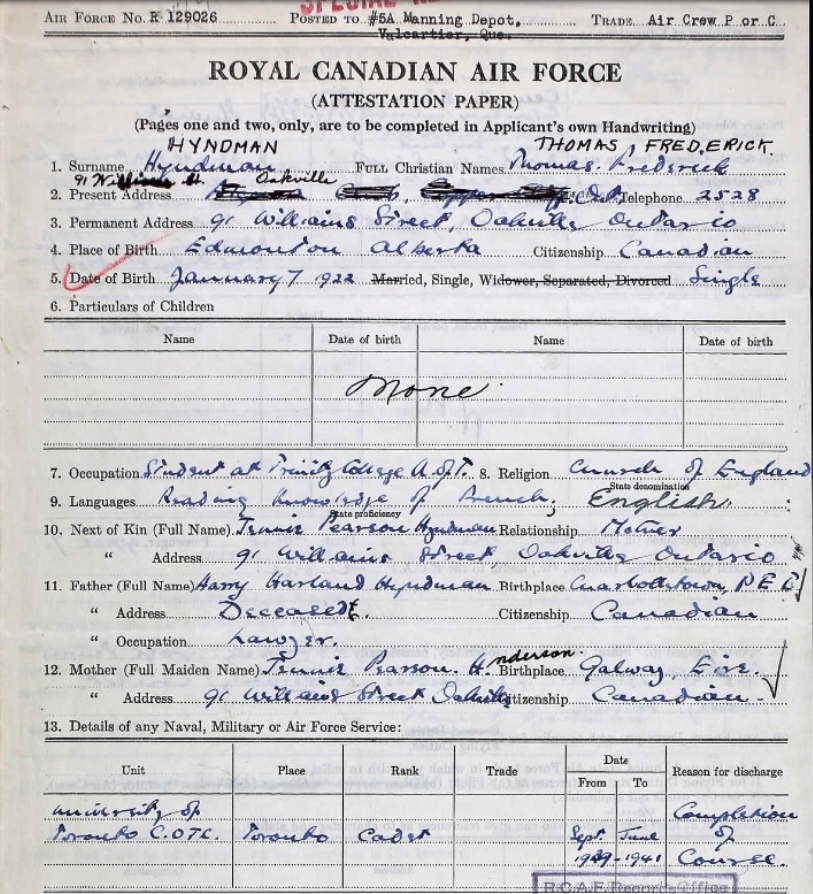 SPECIAL
AIR FORCE NO. R 129026 POSTED TO #5A Manning Depot, TRADE Air Crew P or C
Valcartier, Que.
ROYAL CANADIAN AIR FORCE
(ATTESTATION PAPER)
(Pages one and two, only, are to be completed in Applicant's own Handwriting)
HYNDMAN THOMAS FREDERICK
1. Surname Hyndman FULL Christian Names Thomas Frederick
91 Williams St. Oakville
2. Present Address Telephone 2528
3. Permanent Address 91 Williams Street, Oakville Ontario
4. Place of Birth Edmonton Alberta Citizenship Canadian
5. Date of Birth January 7 1922 Married, Single, Widower, Separated, Divorced Single
6. Particulars of Children
Name Date of birth Name Date of birth
None
7. Occupation Student at Trinity College U. of T. 8. Religion Church of England
State denomination
9. Languages Reading knowledge of French; English
State proficiency
10. Next of Kin (Full Name) Jennie Pearson Hyndman Relationship Mother
" Address 91 Williams Street, Oakville Ontario
11. Father (Full Name) Harry Harland Hyndman Birthplace Charlottetown, P E I
" Address Deceased Citizenship Canadian
" Occupation Lawyer.
12. Mother (Full Maiden Name) Jennie Pearson Henderson. Birthplace Galway, Eire.
" Address 91 Williams Street Oakville Citizenship Canadian
13. Details of any Naval, Military or Air Force Service:
Unit Place Rank Trade Date Reason for discharge
From To
University of Completion
Toronto C.O.T.C. Toronto Cadet Sept. June of
1939-1941 Course.
R.C.A.F. Records Office